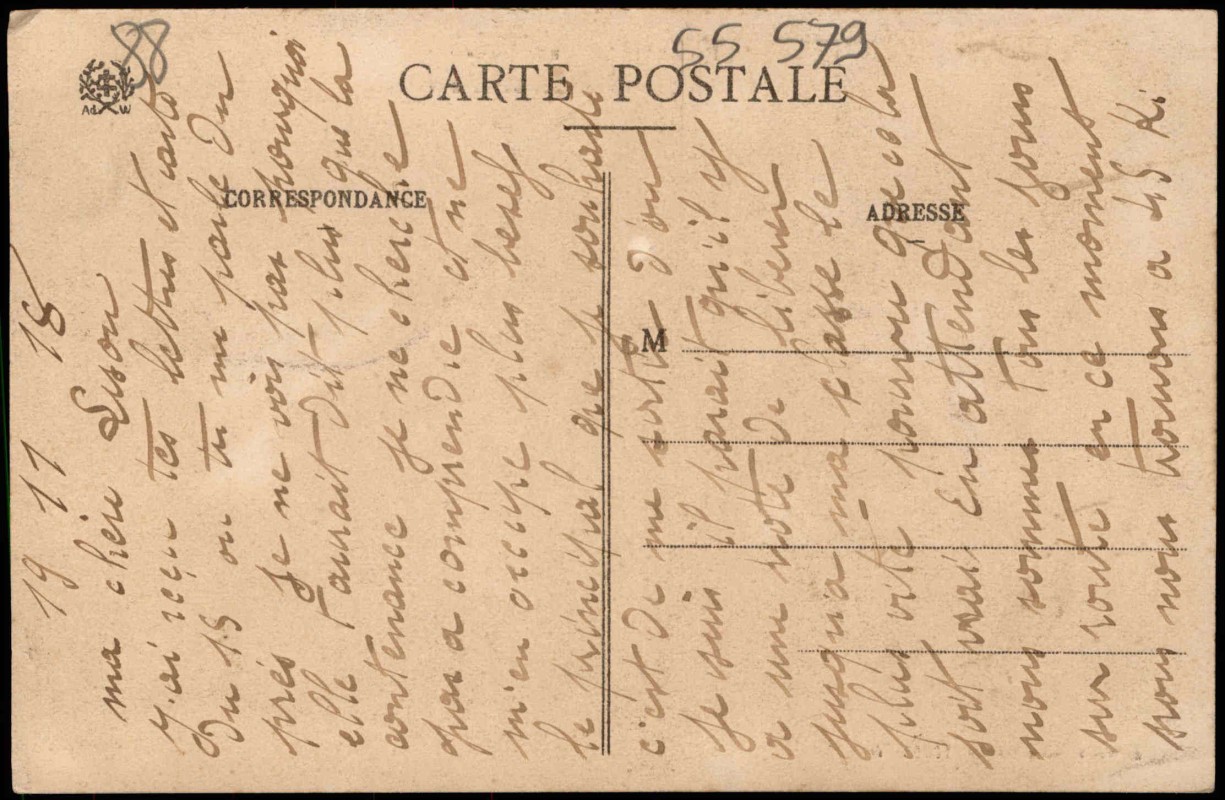 88
55 579
CARTE POSTALE
CORRESPONDANCE
ADRESSE
M
Ad W
19 11 18
ma chère Suson
j'ai reçu tes lettres et carte
du 15 ou tu me parle du
près je ne vois pas pourquoi
elle t'aurait dit plus que la
contenance je ne cherche
pas a comprendre et ne
m'en occupe plus bref
le principal que je souhaite
c'est de me sortir d'ou
je suis il parait qu'il y
a une note de liberer
jusqu'a ma classe le
plus vite pourvu que cela
soit vrai En attendant
nous sommes tous les jours
sur route en ce moment
nous nous trouvons a 45 Ki